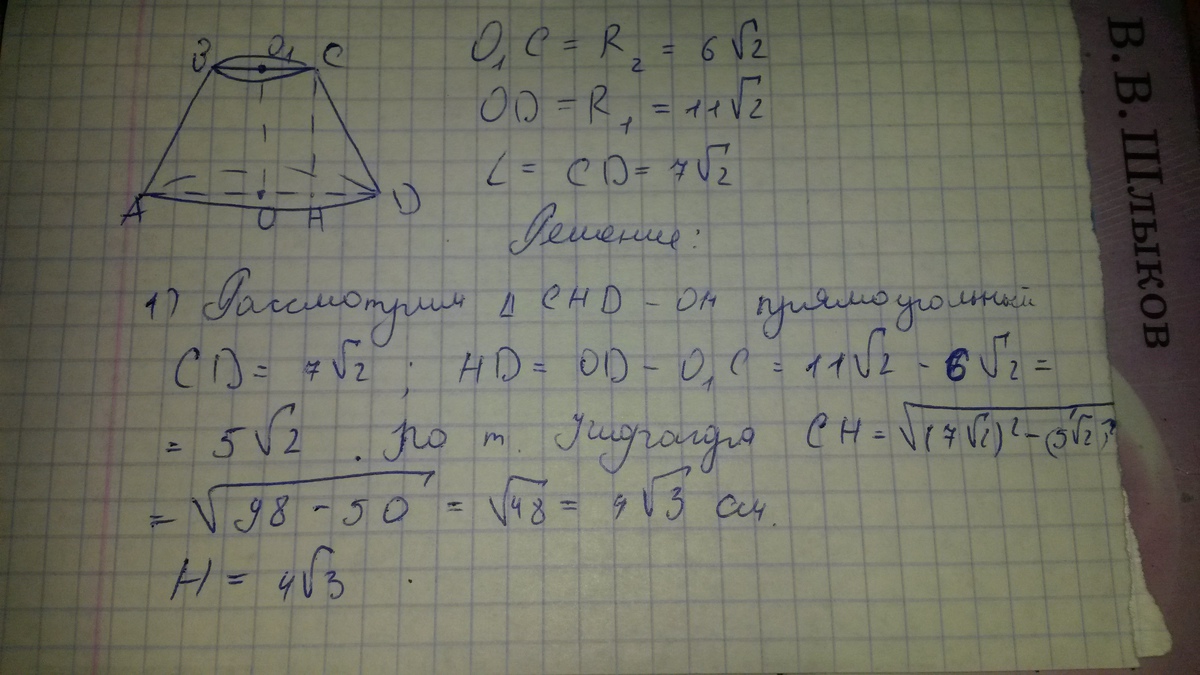 B O₁ C
A O H D
O₁C = R₂ = 6√2
OD = R₁ = 11√2
L = CD = 7√2
Решение:
1) Рассмотрим Δ CHD - он прямоугольный
CD = 7√2 ; HD = OD - O₁C = 11√2 - 6√2 =
= 5√2 . По т. Пифагора CH = √((7√2)² - (5√2)²)
= √(98 - 50) = √48 = 4√3 см.
H = 4√3 .
В. В. Шлыков